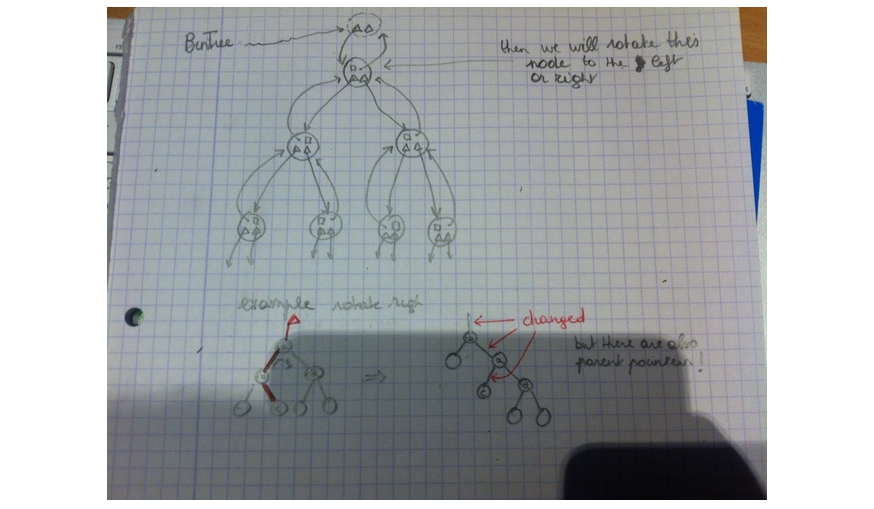 BinTree
then we will rotate this
node to the left
or right
example rotate righ
changed
but there are also
parent pointers!